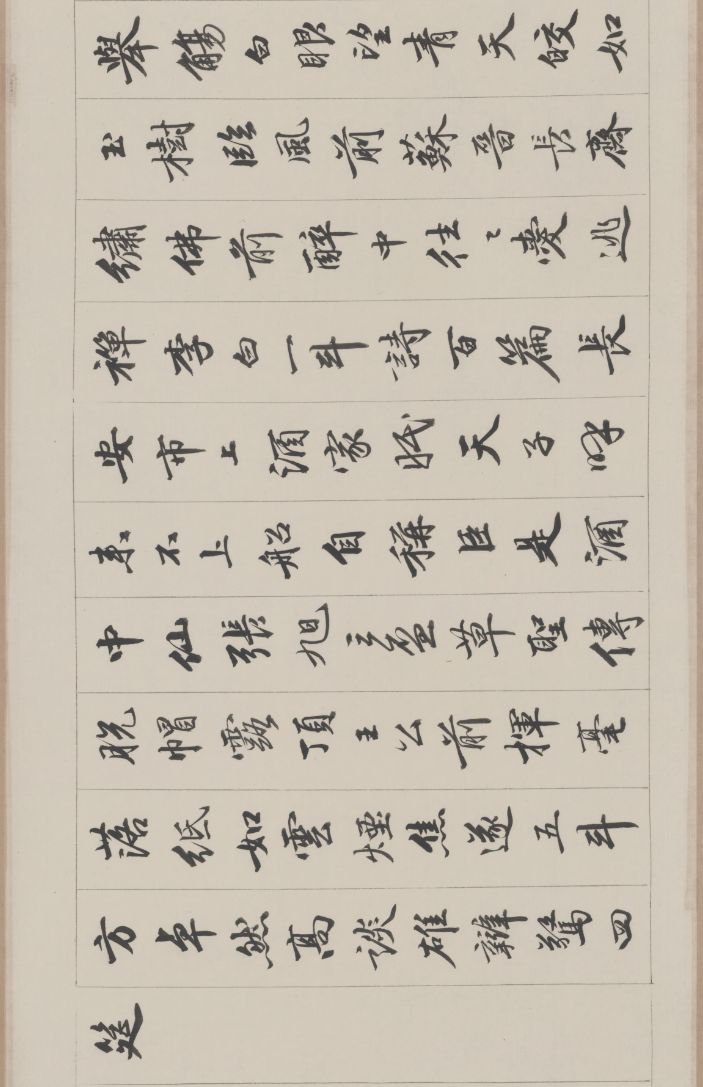 舉觴白眼望青天皎如
玉樹臨風前蘇晉長齋
繡佛前醉中往〻愛逃
禪李白一斗詩百篇長
安市上酒家眠天子呼
來不上船自稱臣是酒
中仙張旭三盃草聖傳
脫帽露頂王公前揮毫
落紙如雲煙焦遂五斗
方卓然高談雄辯驚四
筵